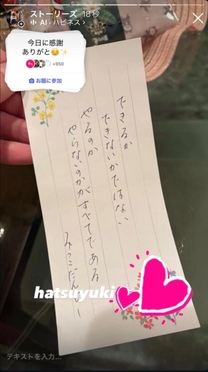 ストーリーズ 18秒
AI・ハピネス >
今日に感謝
ありがと😊✨
+950
お題に参加
できるか
できないかではない
やるのか
やらないのかがすべてである
hatsuyuki
テキストを入力...